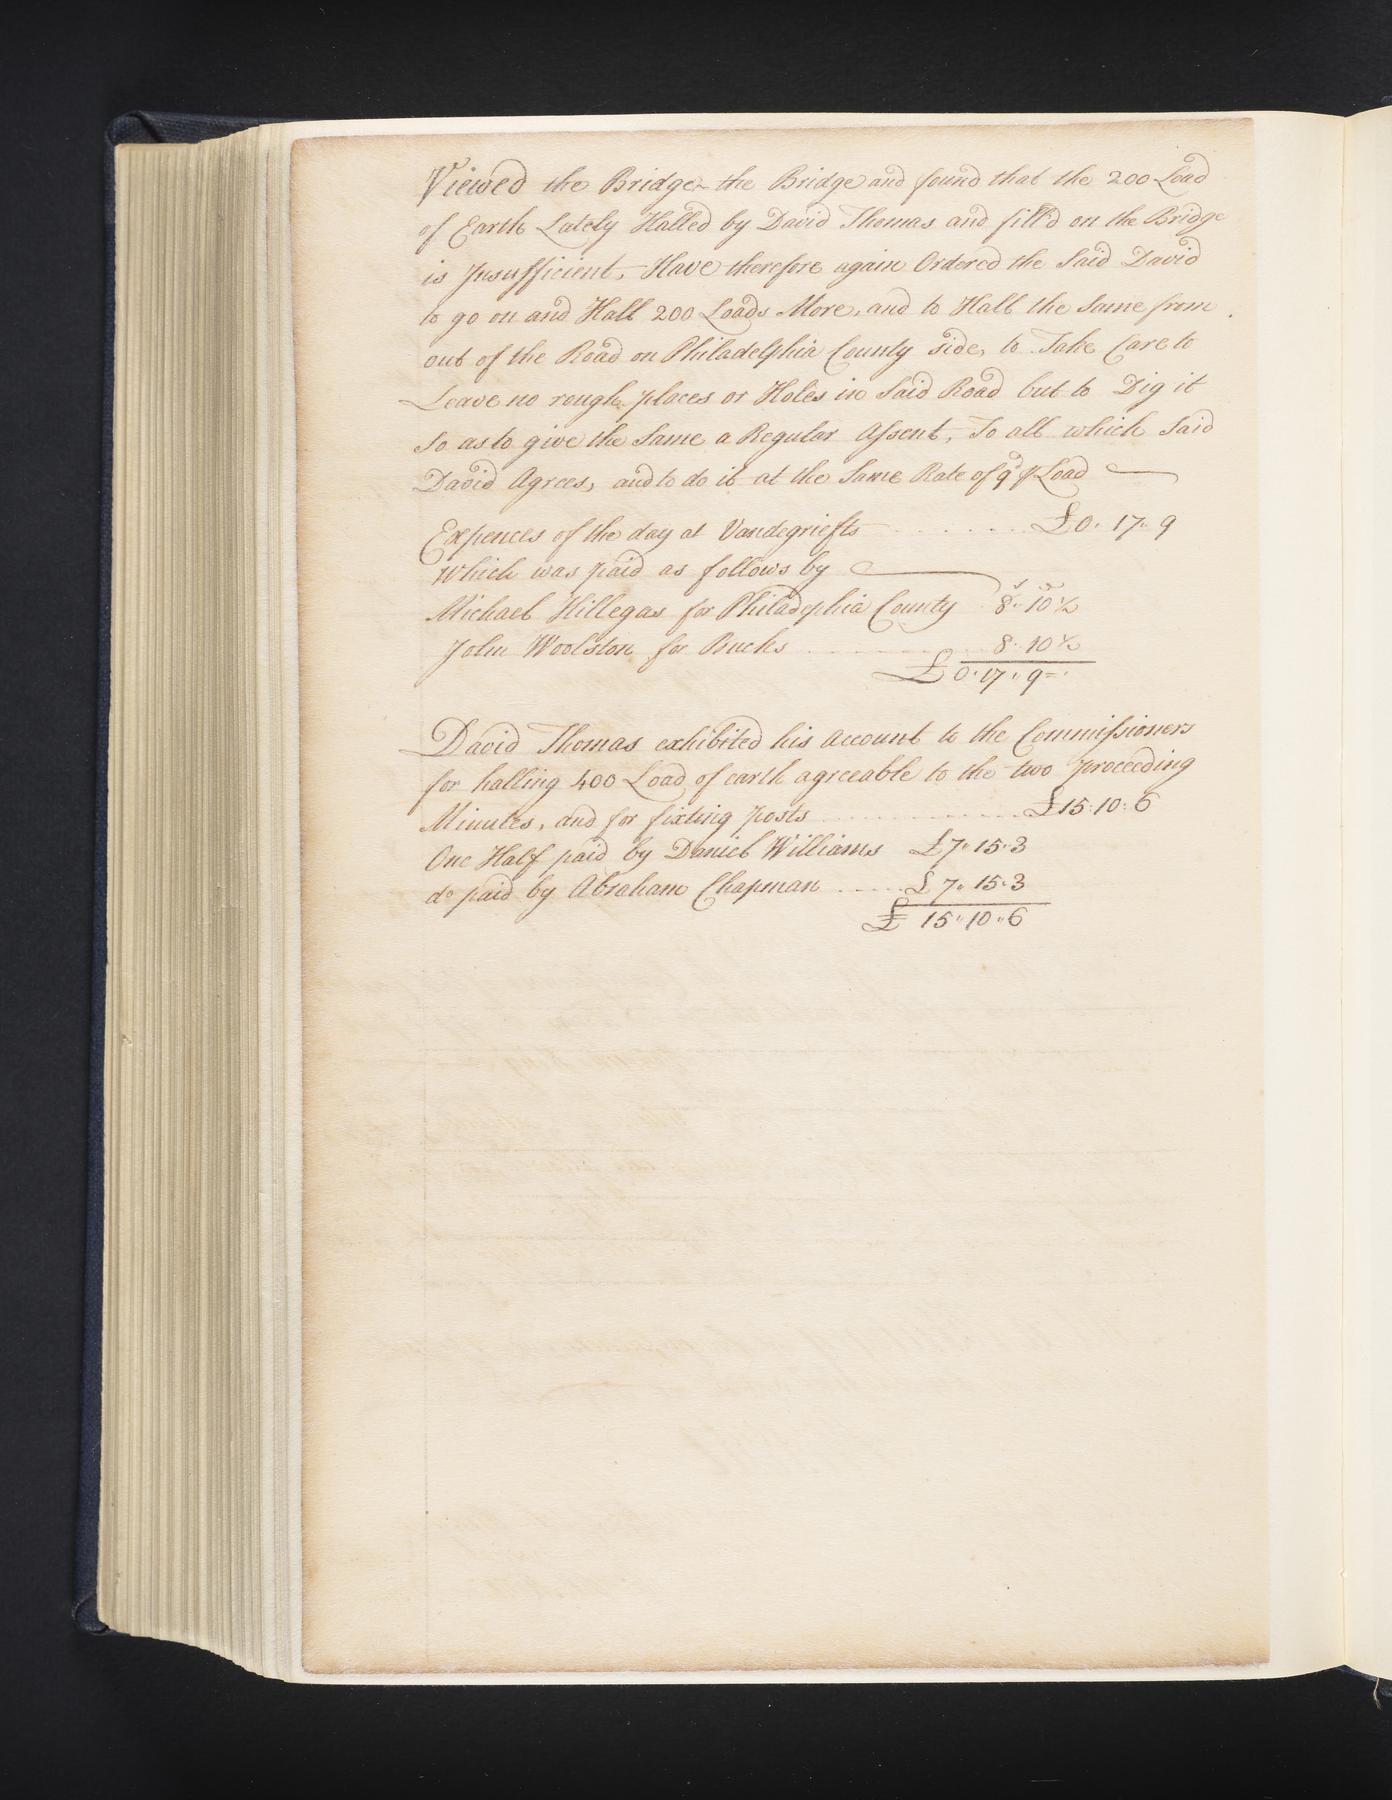 Viewed the Bridge the Bridge and found that the 200 Load
of Earth Lately Halled by David Thomas and fill'd on the Bridge
is Insufficient, Have therefore again Ordered the Said David
to go on and Hall 200 Loads More, and to Hall the Same from
out of the Road on Philadelphia County side, to Take Care to
Leave no rough places or Holes in Said Road but to Dig it
So as to give the Same a Regular Assent, To all which Said
David Agrees, and to do it at the Same Rate of 9d ⅌ Load
Expences of the day at Vandegriefts £0. 17. 9
Which was paid as follows by
Michael Hillegas for Philadephia County 8. 10½
John Woolston for Bucks 8. 10½
£0. 17. 9
David Thomas exhibited his Account to the Commissioners
for halling 400 Load of earth agreeable to the two proceeding
Minutes, and for fixting posts £15. 10. 6
One Half paid by Daniel Williams £7. 15. 3
do paid by Abraham Chapman £7. 15. 3
£15. 10. 6